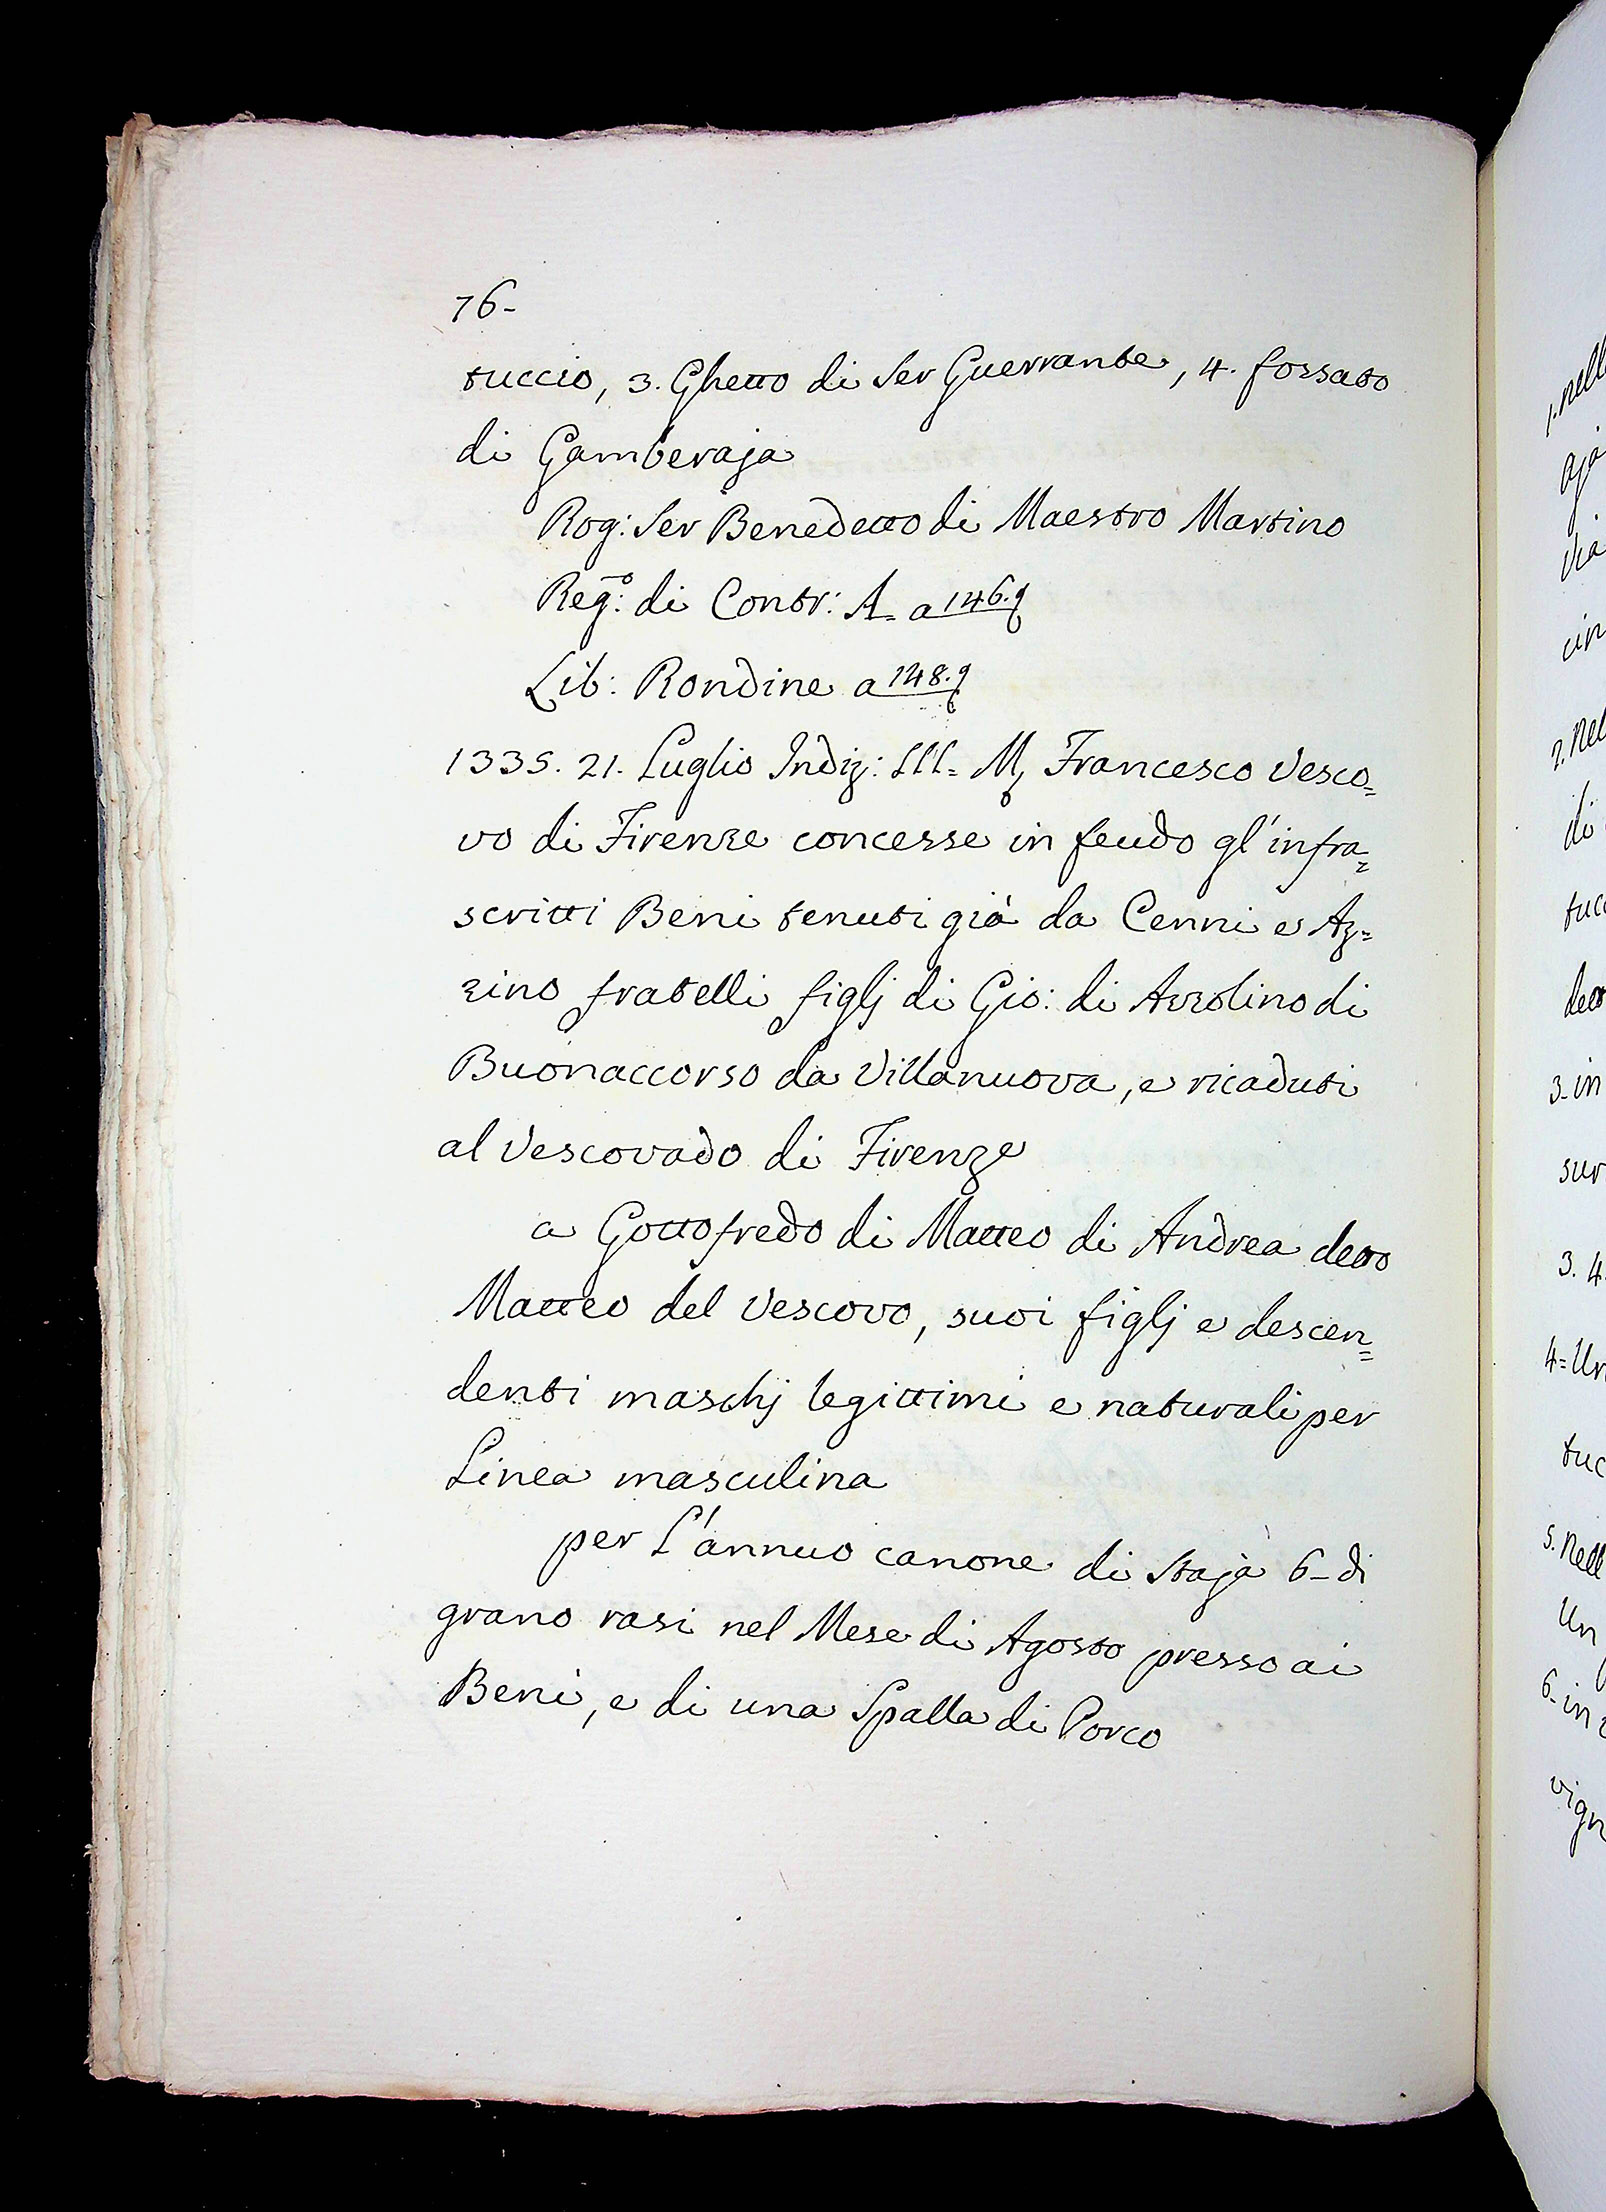 76-
tuccio, 3. Ghetto di Ser Guerrante, 4. fossato
di Gamberaja
Rog: Ser Benedetto di Maestro Martino
Reg:º di Contr: A= a 146.
Lib: Rondine a 148.
1335. 21. Luglio Indiz: III= M, Francesco Vesco=
vo di Firenze concesse in feudo gl'infra=
scritti Beni tenuti già da Cenni e Az=
zino fratelli figlj di Gio: di Azzolino di
Buonaccorso da Villanuova, e ricaduti
al Vescovado di Firenze
a Gottofredo di Matteo di Andrea detto
Matteo del Vescovo, suoi figlj e descen=
denti maschj legittimi e naturali per
Linea masculina
per L'annuo canone di Staja 6- di
grano rasi nel Mese di Agosto presso ai
Beni, e di una Spalla di Porco
1. nell
aja
via
cin
2. Nel
di
tuc
3- in
sur
3. 4.
4= Un
tuc
5. Nell
Un
6- in
vign